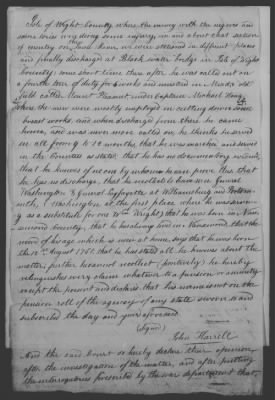 Isle of Wight County where the enemy with the negroes and
some tories was doing some injury, in and about that section
of country on James River, we were stationed in different places
and finally discharged at Black water bridge in Isle of Wight
County: some short time then after he was called out on
a fourth tour of duty for 3 weeks and mustered in
field called Mount Pleasant under Captain Michael King.
where the men were mostly employed in cutting down some
breast works and when discharged from there he came
home, and was never more called on, he thinks he served
in all from 9 to 10 months, that he was marched and served
in the Counties as stated; that he has no documentary evidence
that he knows of no one by whom he can prove, that
he has no discharge, that he recollects to have seen General
Washington & General Lafayette at Williamsburg and Portsm
outh, (Washington, at the first place when he was servin
g as a substitute for one Wm Wright) that he was born in Nan
semond County, that he has always lived in Nansemond, that
record of his age which is now at home, says that he was born
the 12th August 1761. that he has stated all he knows about the
matter further he cannot recollect (positively) he hereby
relinquishes every claim whatever to a pension or annuity
except the present and declares that his name is not on the
pension roll of the agency of any state sworn to and
subscribed the day and year aforesaid
(Signed)
John Harrell
And the said Court do hereby declare their opinion
after the investigation of the matter, and after putting
the interrogatories prescribed by the war department that